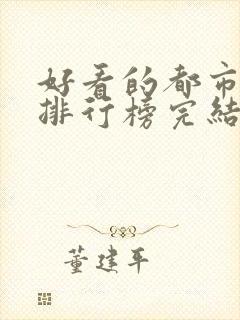 好看的都市
排行榜完结
董建平